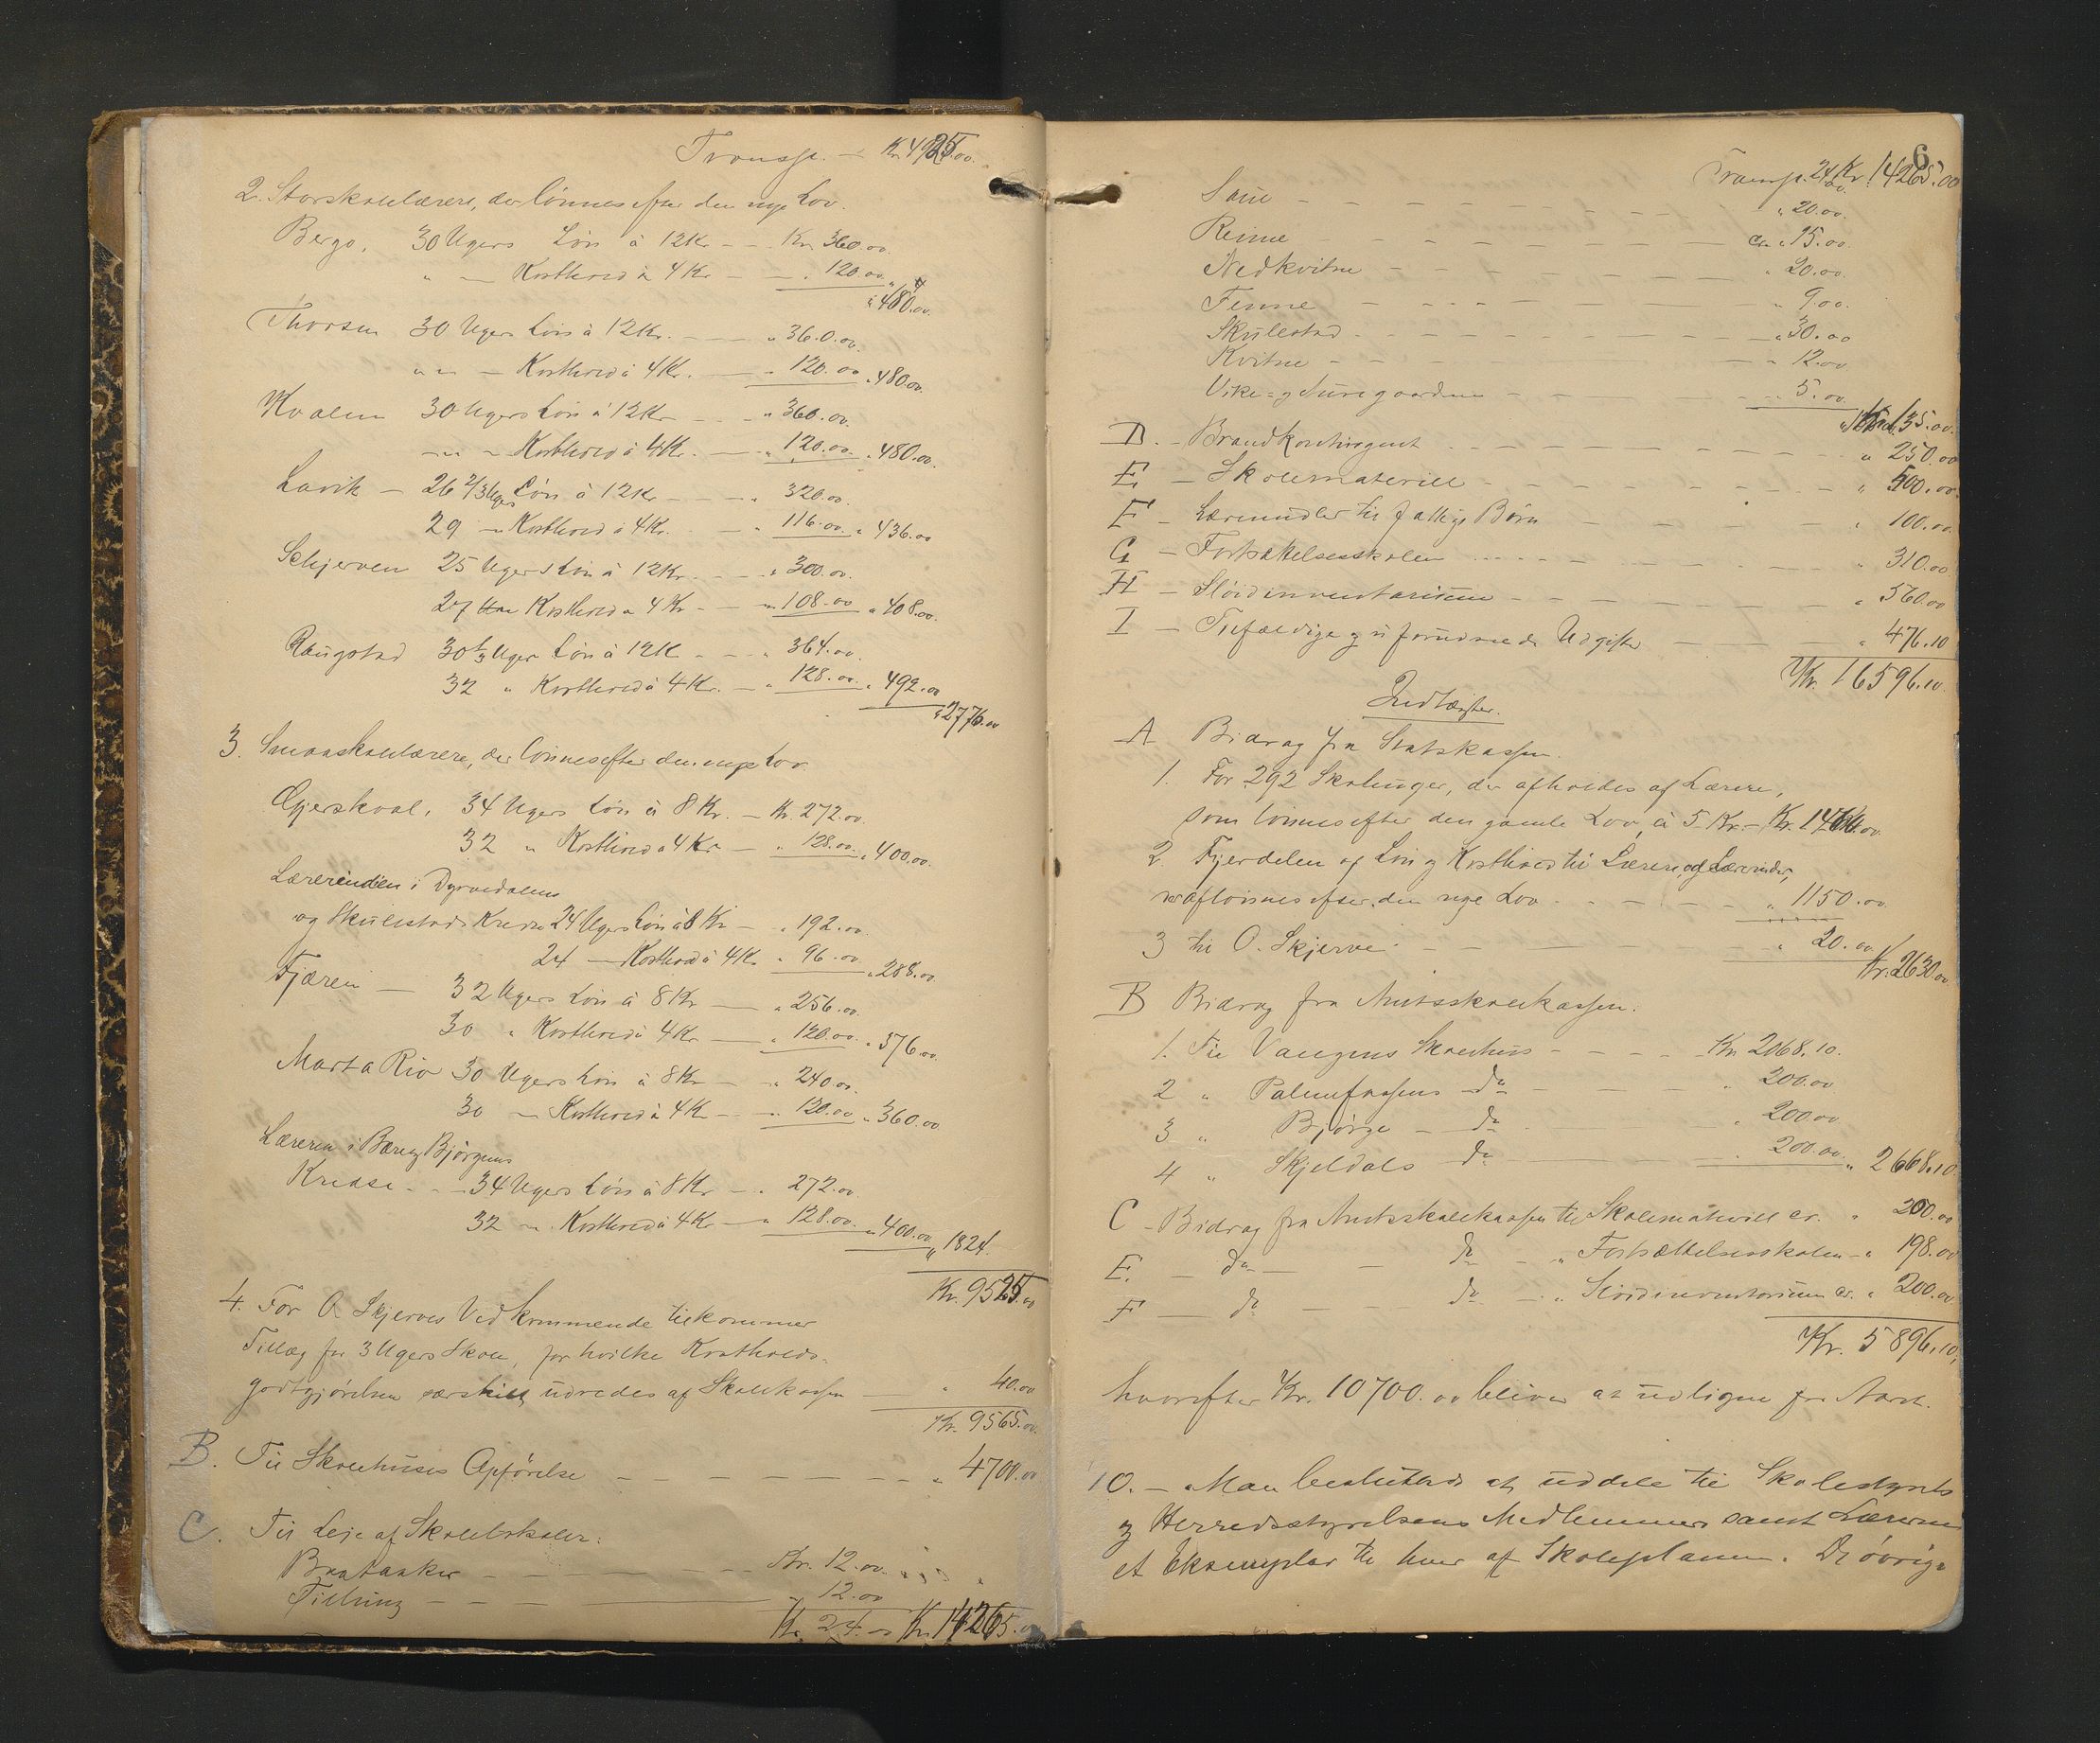 Transp. — Kr. 4925.00.
2. Storskolelærere, der lönnes efter den nye Lov.
Bergo. 30 Ugers Lön à 12 Kr. — Kr. 360.00.
" — Kosthold à 4 Kr. — " 120.00. " 480.00.
Thorsen 30 Ugers Lön à 12 Kr. — " 360.00.
" " — Kosthold à 4 Kr. — " 120.00 " 480.00.
Kvalem 30 Ugers Lön à 12 Kr — " 360.00.
— " — Kosthold à 4 Kr. — " 120.00. " 480.00.
Lavik — 26 2/3 Ugers Lön à 12 Kr — " 320.00.
29 — Kosthold à 4 Kr. — " 116.00. " 436.00
Schjerven 25 Ugers Lön à 12 Kr. — " 300.00.
27 — Kosthold à 4 Kr. — " 108.00 " 408.00.
Raugstad 30 1/3 Uger Lön à 12 K — " 364.00.
32 " Kosthold à 4 Kr. — " 128.00. " 492.00
" 2776.00
3. Smaaskolelærere, der lönnes efter den nye Lov
Gjerskval. 34 Ugers Lön à 8 Kr. — Kr. 272.00.
32 " Kosthold à 4 Kr — " 128.00. " 400.00.
Lærerinden i Dyrvedalens
og Skulestads Kredse 24 Ugers Lön à 8 Kr — " 192.00.
24 — Kosthold à 4 Kr. " 96.00. " 288.00
Fjæren — 32 Ugers Lön à 8 Kr — " 256.00.
30 " Kosthold à 4 Kr — " 120.00. " 376.00.
Marta Rio 30 Ugers Lön à 8 Kr — " 240.00.
30 — Kosthold à 4 Kr — " 120.00 " 360.00
Læreren i Bær og Björgums
Kredse — 34 Ugers Lön à 8 Kr — " 272.00.
32 — Kosthold à 4 Kr — " 128.00. " 400.00.
" 1824.
Kr. 9525.00
4. For O. Skjerves Vedkommende tilkommer
Tillæg for 3 Ugers Skole, for hvilke Kostholds-
godtgjörelsen særskilt udredes af Skolekassen — " 40.00
Kr. 9565.00.
B. Til Skolehuses Opförelse — " 4700.00
C. Til Leje af Skolelokaler:
Brataaker — Kr. 12.00.
Tillung — " 12.00
Kr. 24.00 Kr. 14265.00
6
Transp. 24.00 Kr. 14265.00
Saue — " 20.00.
Reime — ca " 15.00.
Nedkvitne — " 20.00.
Finne — " 9.00.
Skulestad — " 30.00
Kvitne — " 12.00
Vike- og Furegaardene — " 5.00.
Kr. 135.00.
D. — Brandkontingent — " 250.00
E. — Skolemateriell — " 500.00.
F — Læremidler til fattige Börn — " 100.00.
G — Fortsættelsesskolen — " 310.00
H — Slöidinventarium — " 560.00
I — Tilfældige og uforudseede Udgifter — " 476.10
Kr. 16596.10.
Indtægter.
A Bidrag fra Statskassen.
1. For 292 Skoleuger, der afholdes af Lærere,
som lönnes efter den gamle Lov, à 5 Kr. — Kr. 1460.00
2. Fjerdelen af Lön og Kosthold til Lærere og Lærerinder,
der aflönnes efter den nye Lov — " 1150.00
3 til O. Skjerve — " 20.00
Kr. 2630.00
B Bidrag fra Amtsskolekassen.
1. Til Vangens Skolehus — Kr. 2068.10.
2 " Palmefossens do " 200.00
3 " Björge — do " 200.00
4 " Skjeldals do — " 200.00. " 2668.10
C — Bidrag fra Amtsskolekassen til Skolemateriell ca. " 200.00
E. — do — do — " Fortsættelsesskolen — " 198.00
F — do — do — " Slöidinventarium ca. " 200.00
Kr. 5896.10.
hvorefter Kr. 10700.00 bliver at udligne for Aaret.
10. — Man besluttede at uddele til Skolestyrets
og Herredsstyrelsens Medlemmer samt Lærerne
et Eksemplar til hver af Skoleplanen. De övrige